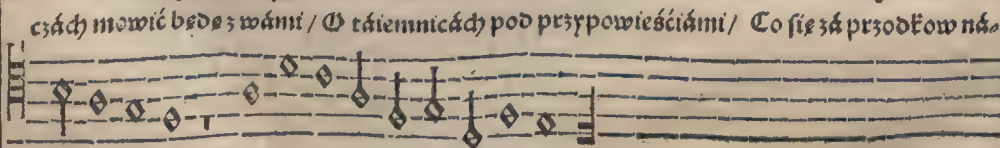 czách mowić będę z wámi / O táiemnicách pod przypowieśćiámi / Co się zá przodkow ná-